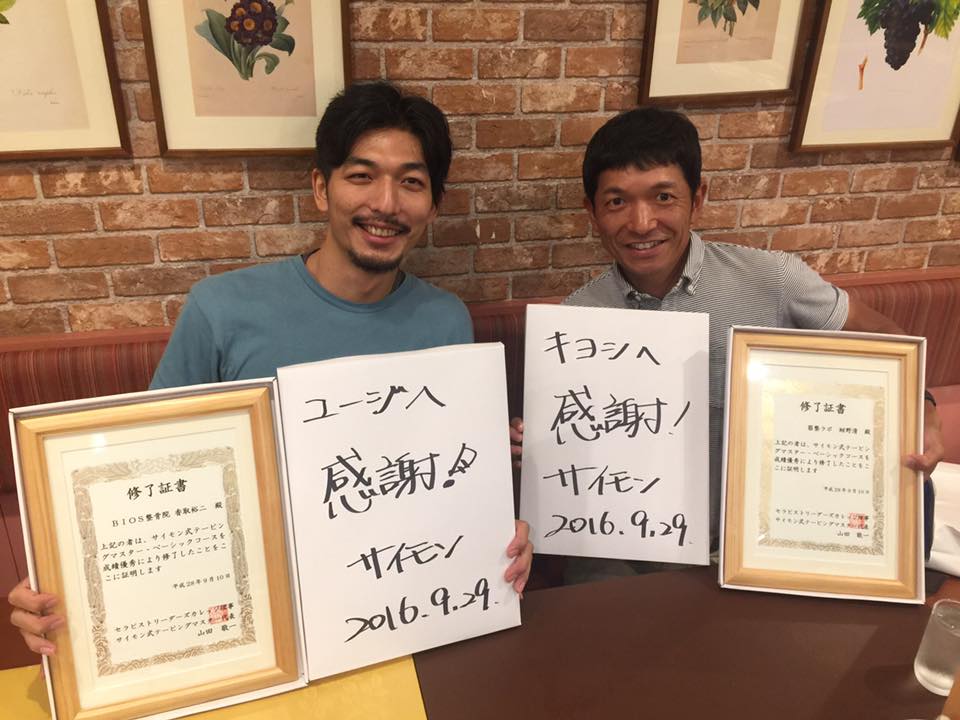 修了証書
BIOS整骨院 香取裕二 殿
上記の者は、サイモン式テーピン
グマスター・ベーシックコースを
成績優秀により修了したことをこ
こに証明します
平成28年9月10日
セラピストリーダーズカレッジ理事
サイモン式テーピングマスター代表
山田 敬一
ユージへ
感謝!!
サイモン
2016.9.29.
キヨシへ
感謝!
サイモン
2016.9.29.
修了証書
上記の者は、サイモン式テーピン
グマスター・ベーシックコースを
成績優秀により修了したことをこ
こに証明します
平成28年9月10日
セラピストリーダーズカレッジ理事
サイモン式テーピングマスター代表
山田 敬一